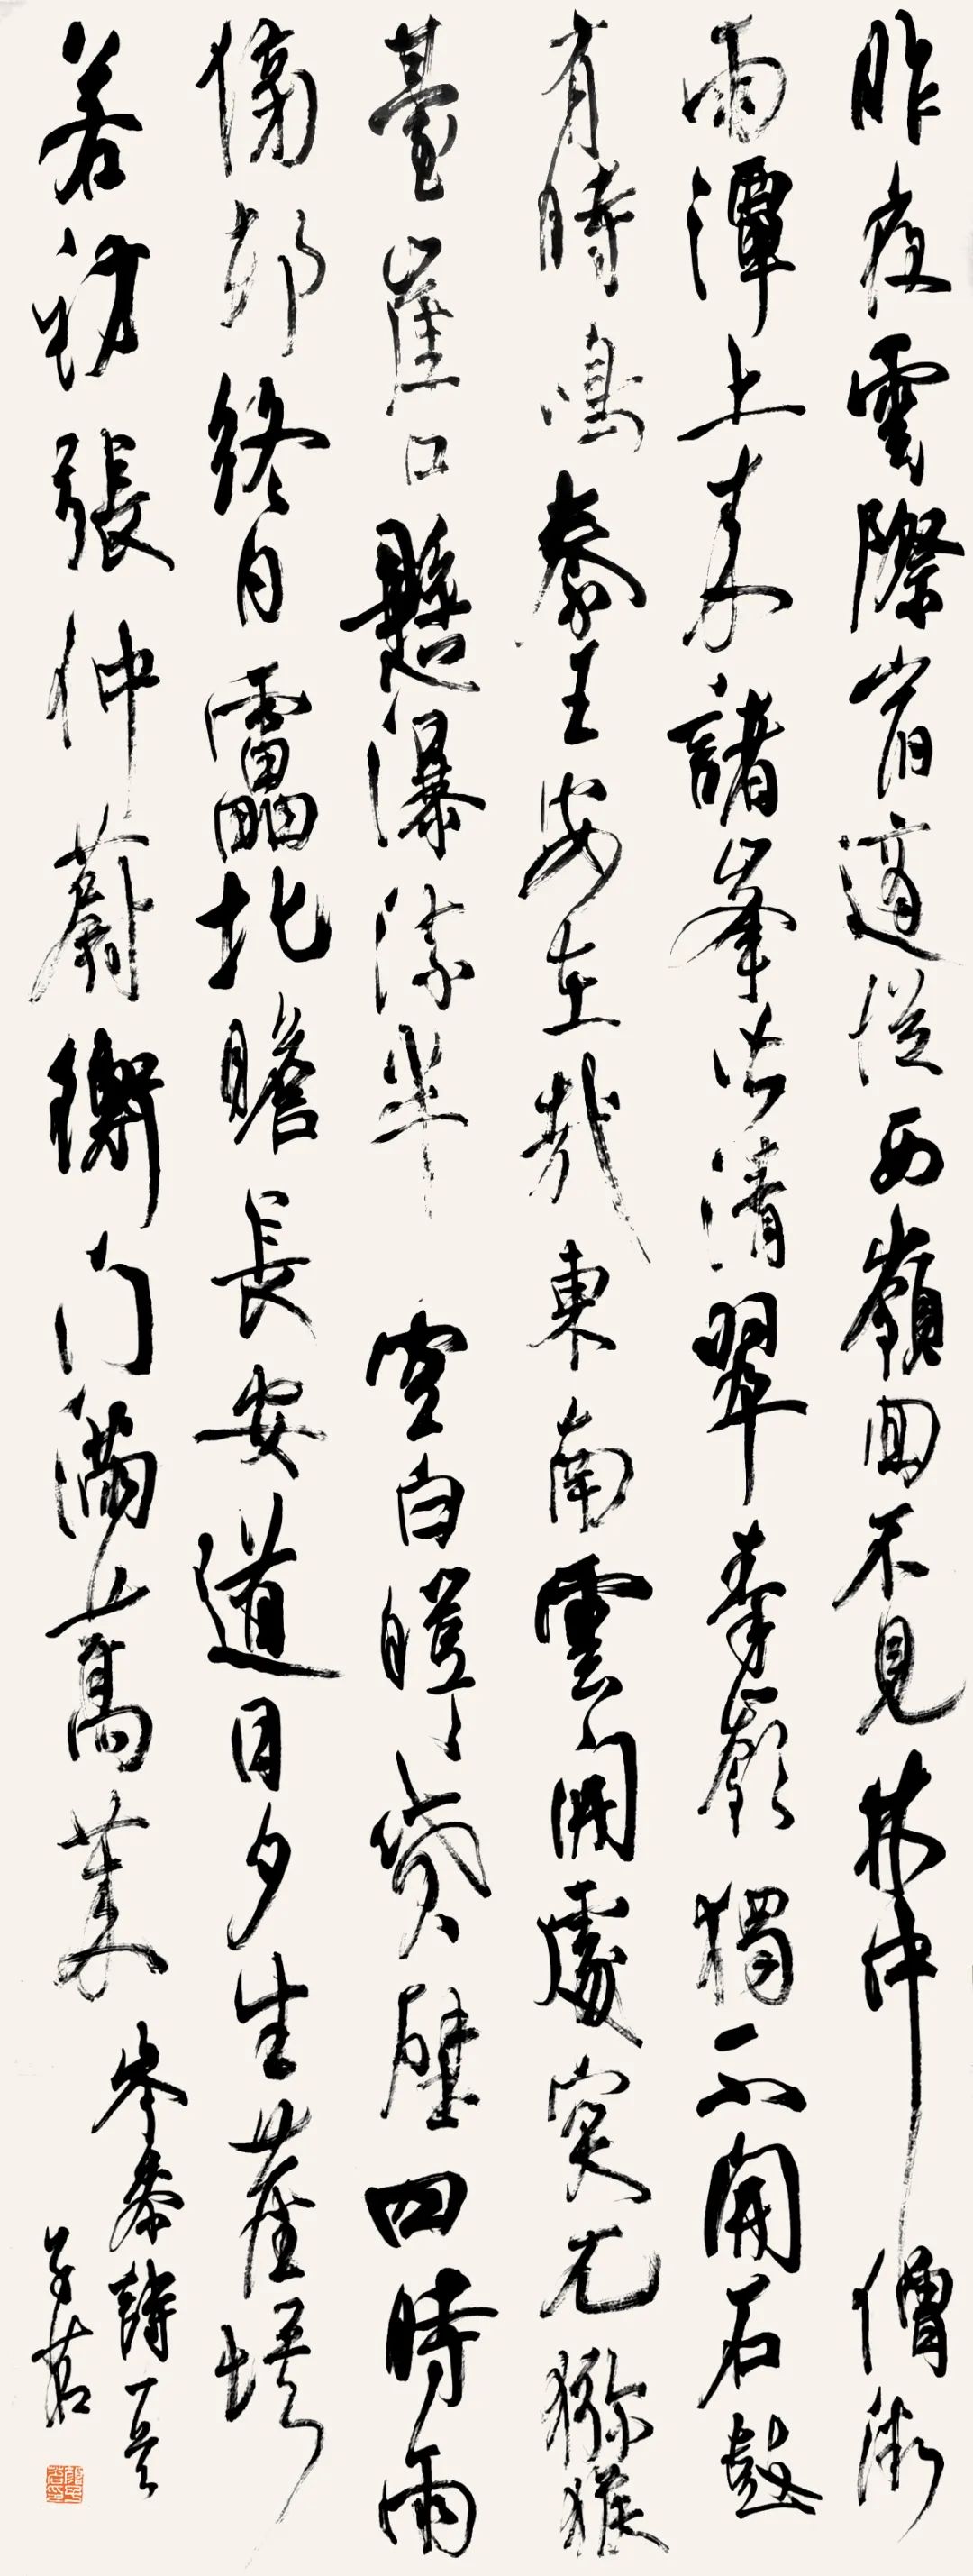 昨夜雲際宿適從西嶺回不見林中僧微
雨潭上來諸峯皆清翠秦嶺獨不開石鼓
有時鳴秦王安在哉東南雲開處突兀獼猴
臺崖口懸瀑流半空白皚々噴壁四時雨
傍邨終日靁北瞻長安道日夕生塵埃
若訪張仲蔚衡門滿蒿萊
岑參詩一首